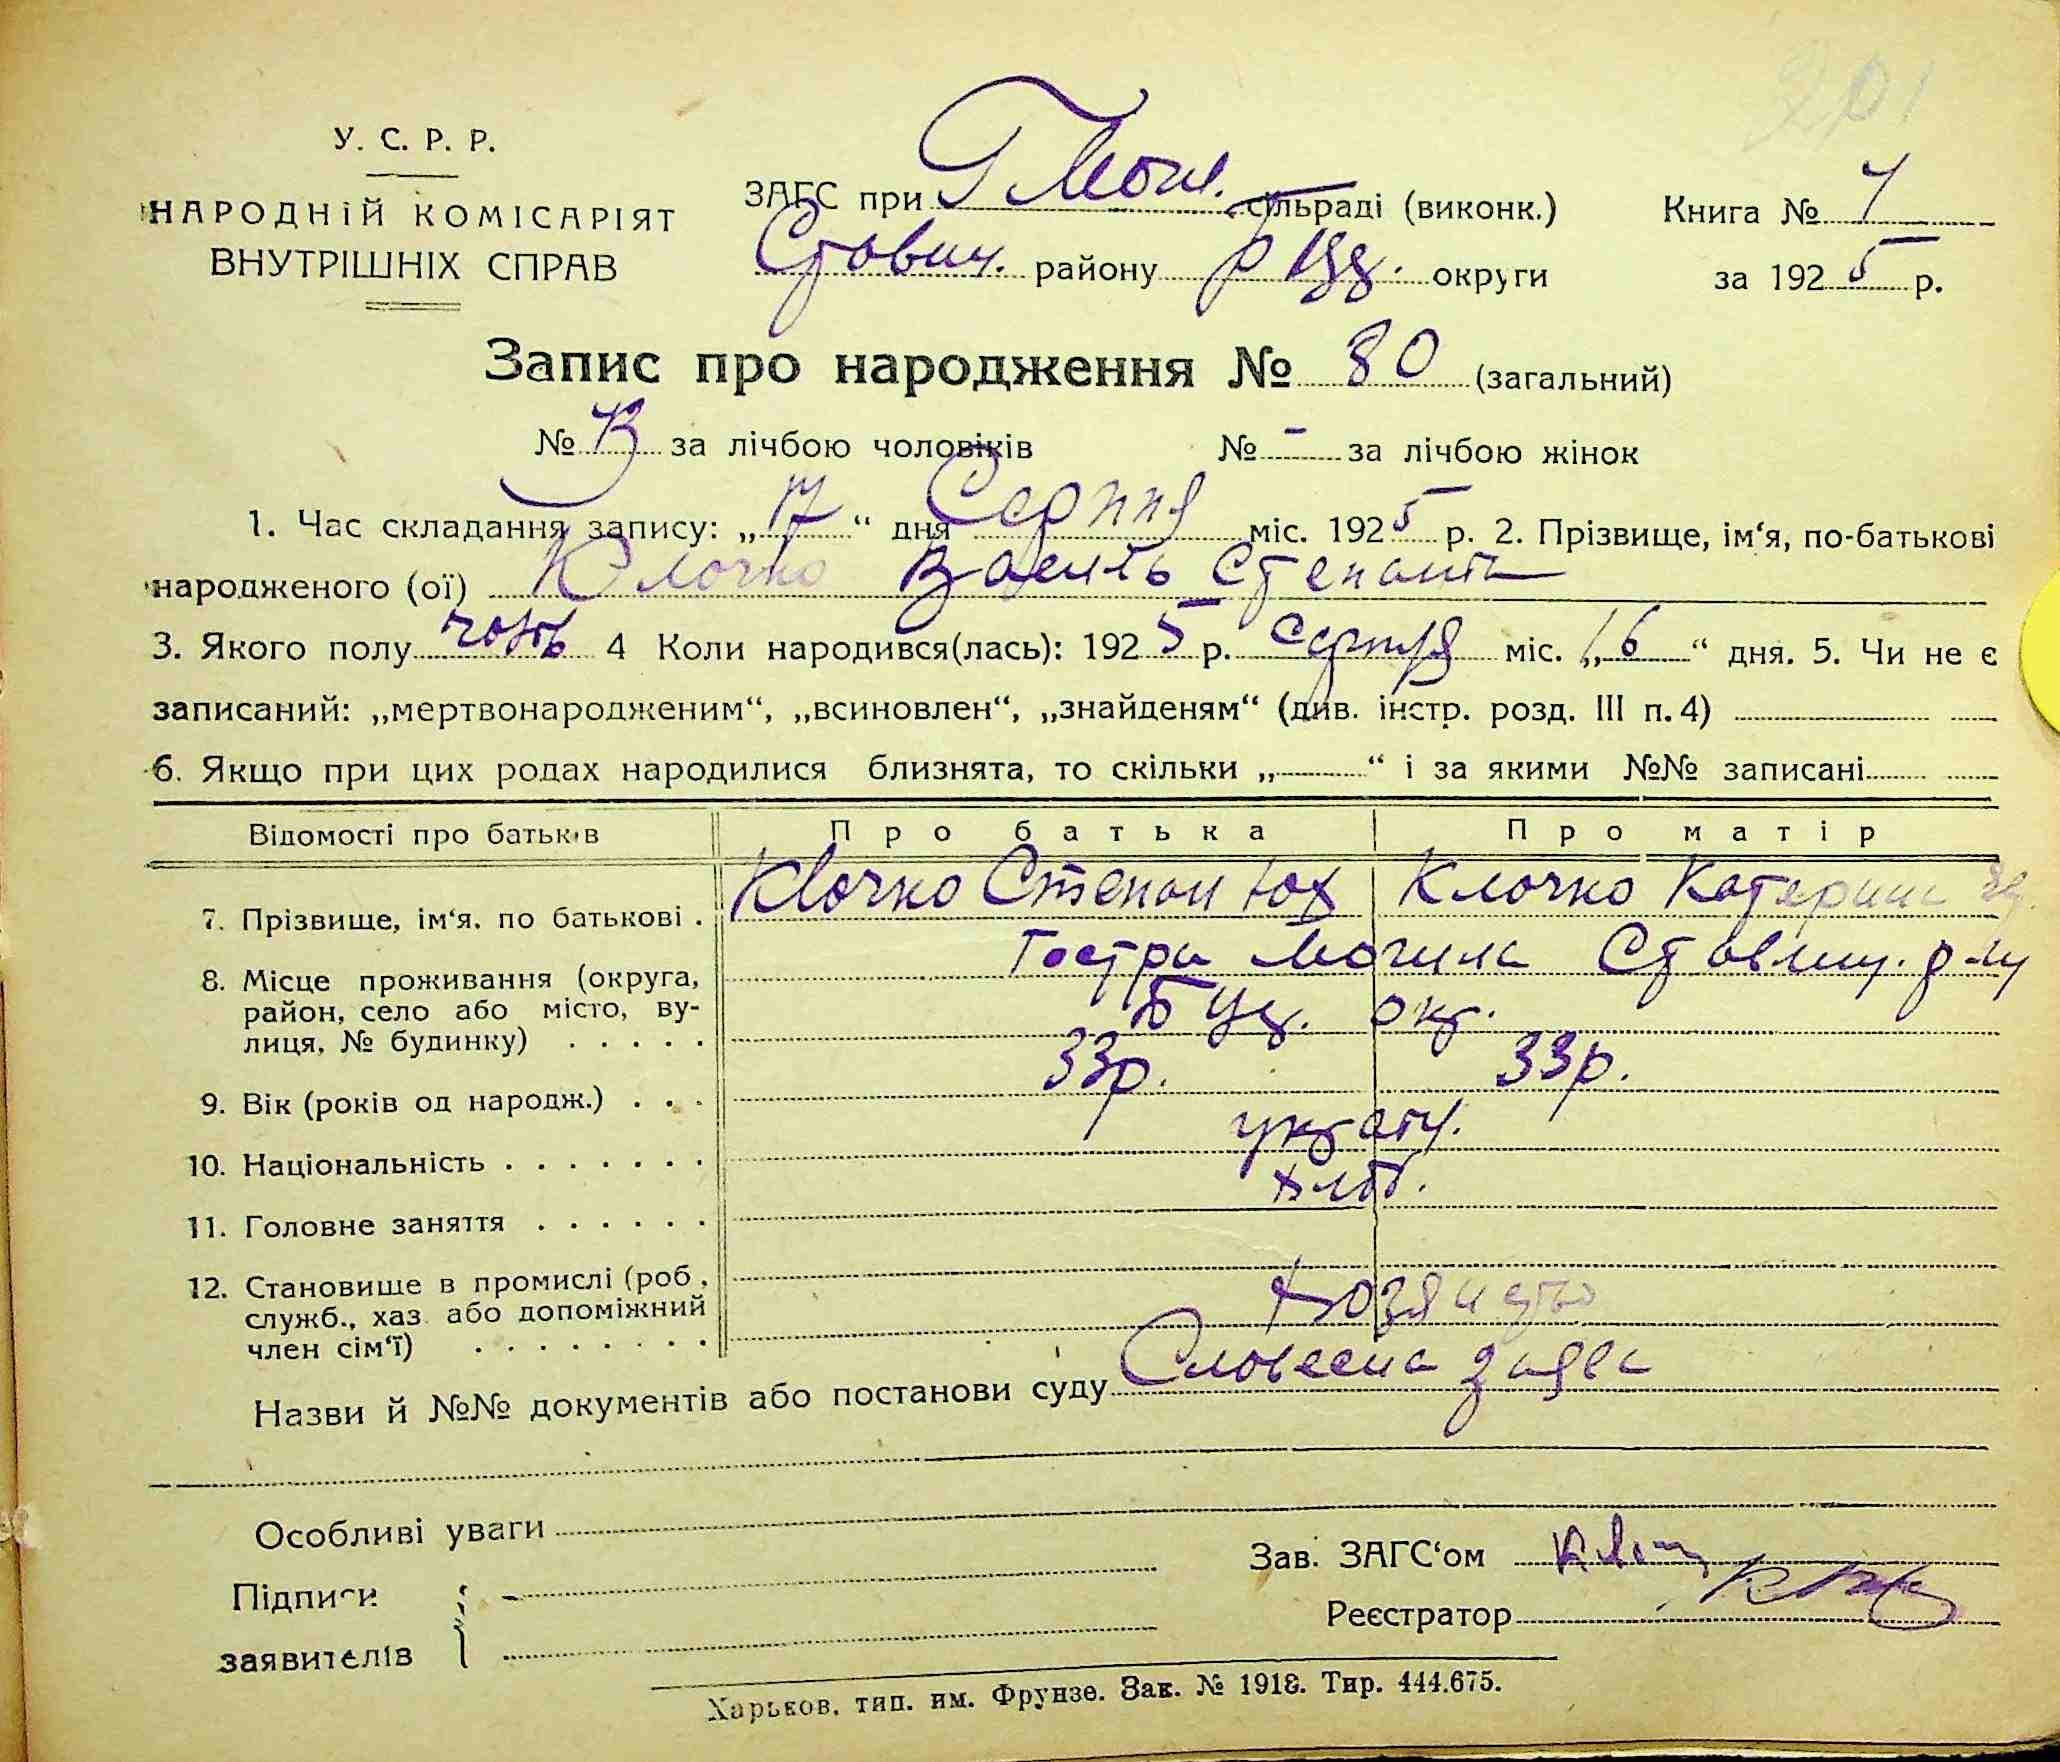 201
У. С. Р. Р.
НАРОДНІЙ КОМІСАРІЯТ
ВНУТРІШНІХ СПРАВ
ЗАГС при Г Мог. сільраді (виконк.)
Ставищ. району Б Цц. округи
Книга №
за 1925 р.
Запис про народження № 80 (загальний)
№ за лічбою чоловіків № - за лічбою жінок
1. Час складання запису: „17“ дня Серпня міс. 1925 р. 2. Прізвище, ім‘я, по-батькові
народженого (ої) Клочко Василь Степанів
3. Якого полу чолов 4 Коли народився(лась): 1925 р. серпня міс. „16“ дня. 5. Чи не є
записаний: „мертвонародженим“, „всиновлен“, „знайденям“ (див. інстр. розд. III п. 4)
6. Якщо при цих родах народилися близнята, то скільки „ “ і за якими №№ записані
Відомості про батьків Про батька Про матір
7. Прізвище, ім‘я, по батькові . Клочко Степан Юх Клочко Катерина
8. Місце проживання (округа, район, село або місто, ву-лиця, № будинку) . . . . . Гостра Могила Ставищ. р-ну
Б Цц. окр.
9. Вік (років од народж.) . . . 33р. 33р.
10. Національність . . . . . . .
11. Головне заняття . . . . . . хліб.
12. Становище в промислі (роб., служб., хаз. або допоміжний член сім‘ї) . . . . . . . .
Назви й №№ документів або постанови суду Словесна заява
Особливі уваги
Зав. ЗАГС‘ом
Підписи
Реєстратор
заявителів
Харьков, тип. им. Фрунзе. Зак. № 1918. Тир. 444.675.